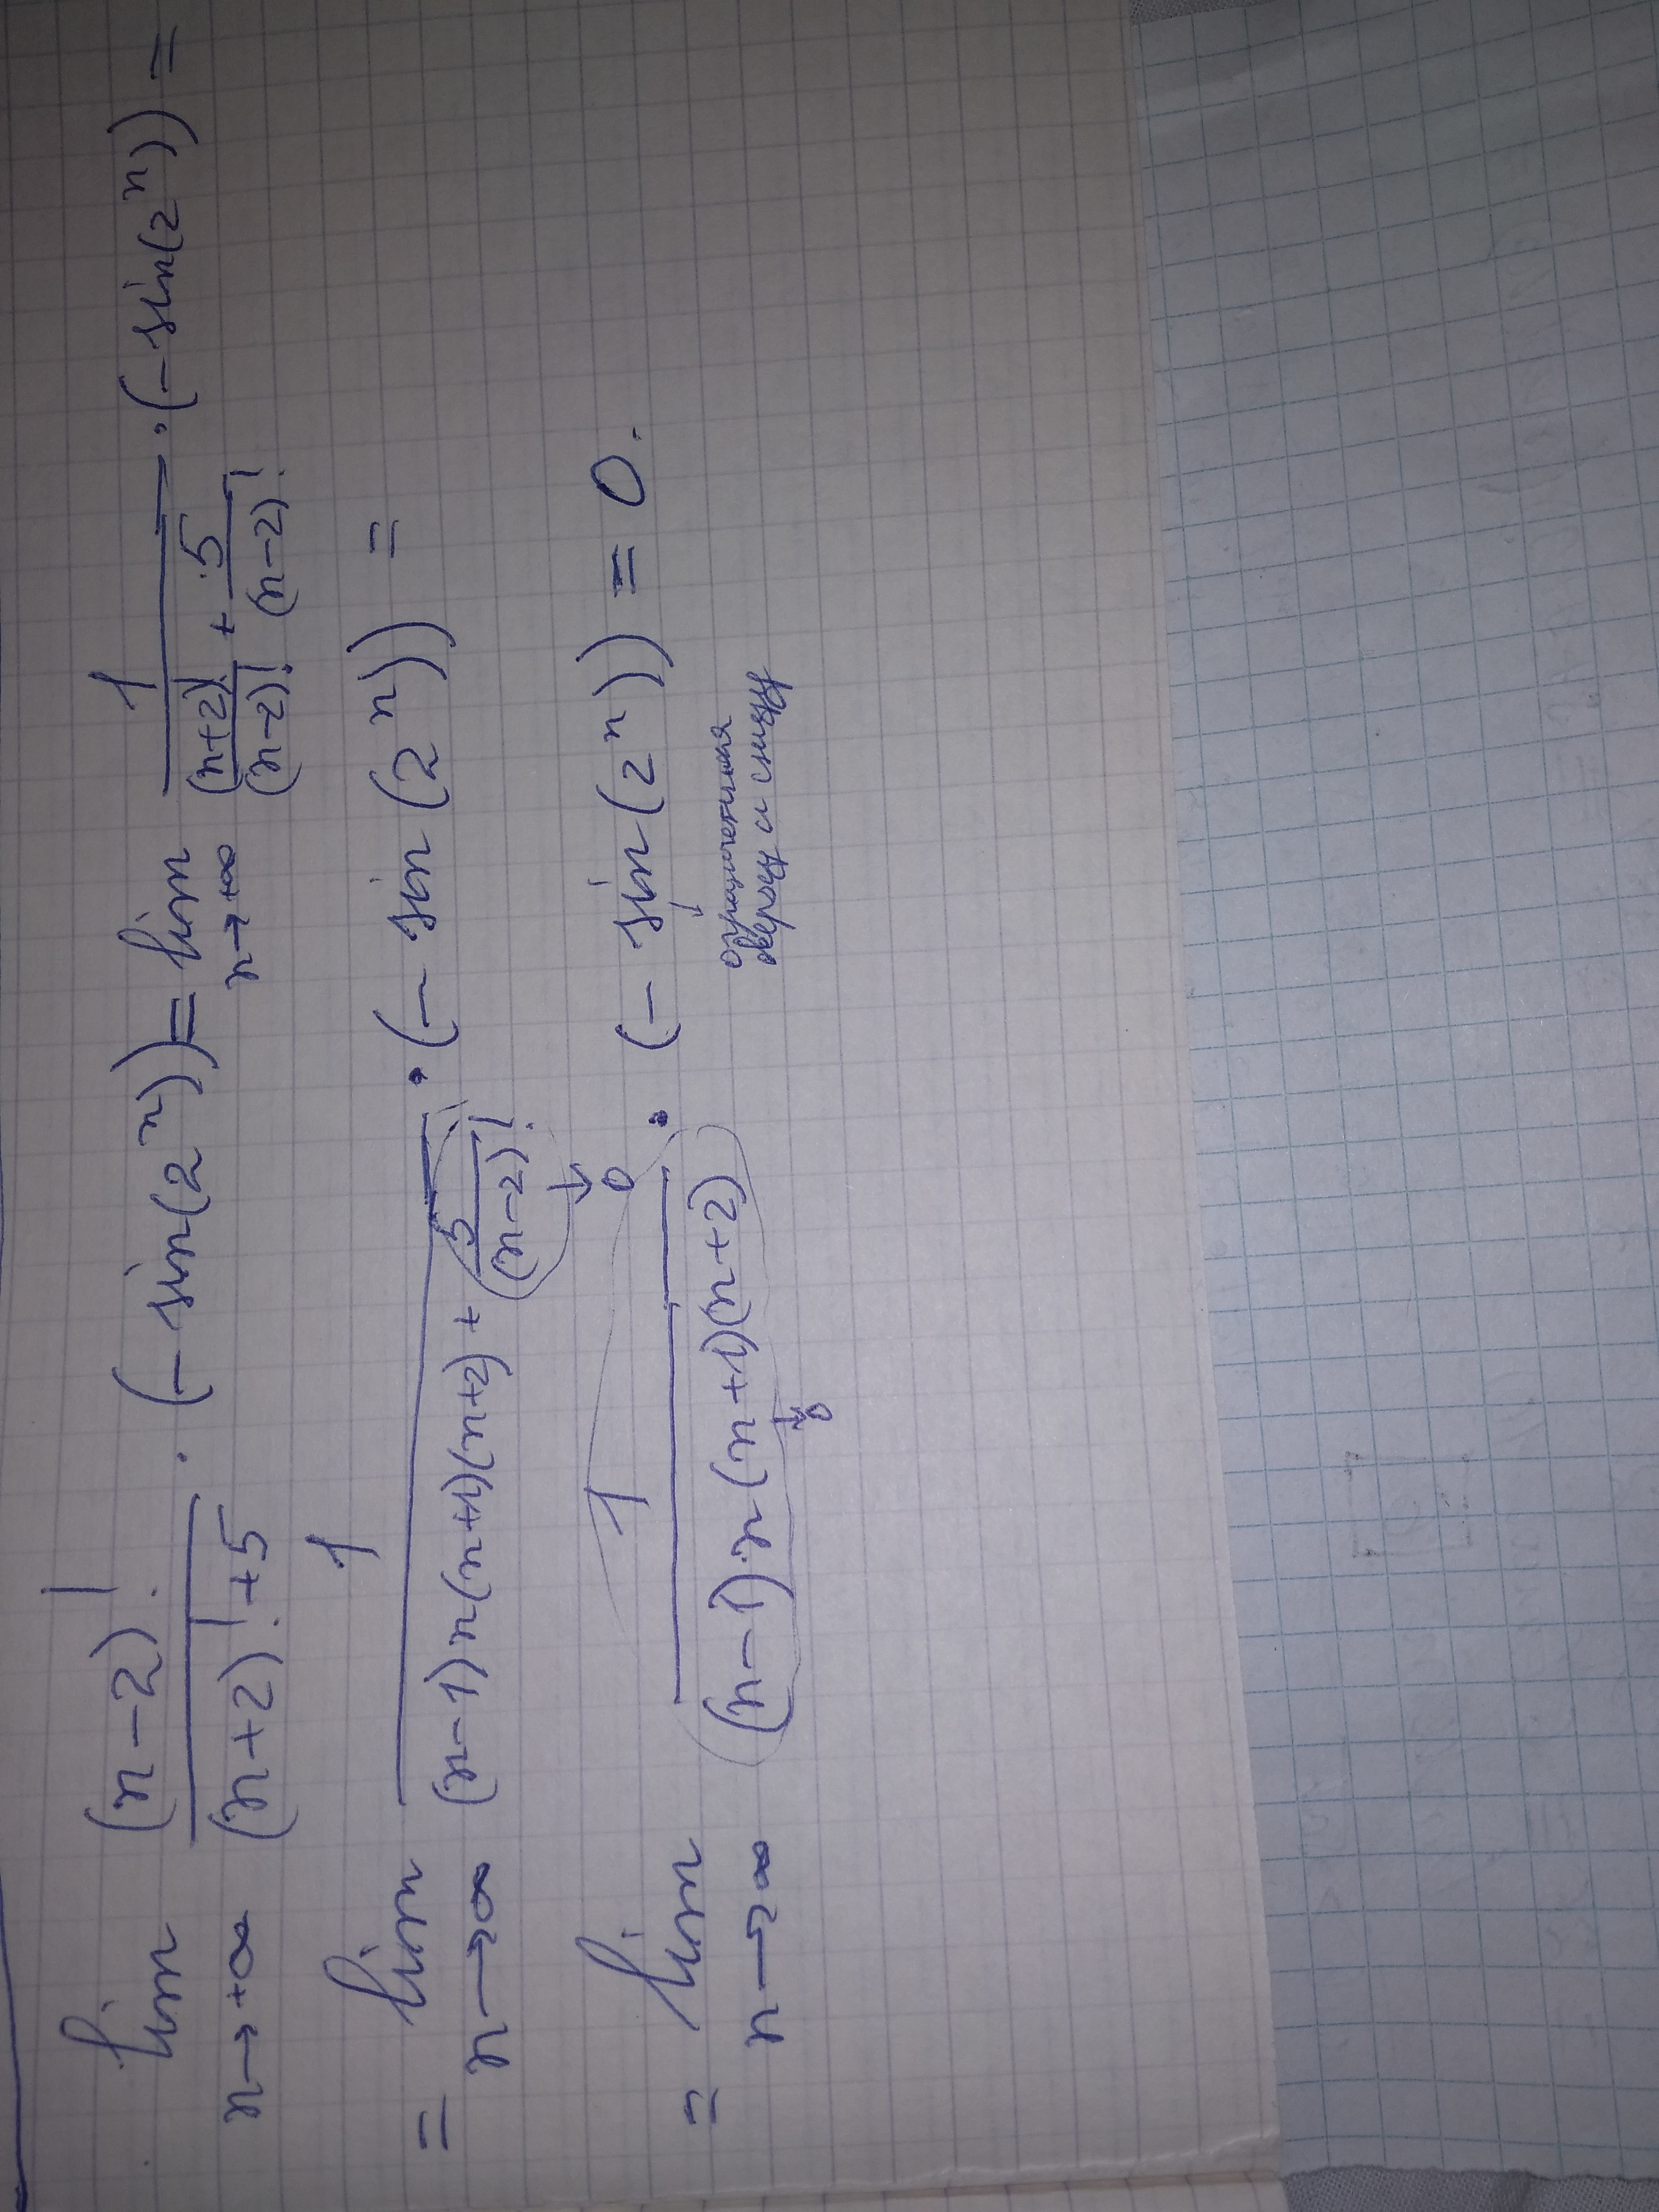 lim n→+∞ (n-2)!/((n+2)!+5) · (-sin(2^n)) = lim n→+∞ 1/((n+2)!/(n-2)! + 5/(n-2)!) · (-sin(2^n)) =
= lim n→∞ 1/((n-1)n(n+1)(n+2) + 5/(n-2)!) · (-sin(2^n)) =
↓
0
= lim n→∞ 1/((n-1)·n·(n+1)(n+2)) · (-sin(2^n)) = 0.
↓
0
↓
ограниченная
сверху и снизу